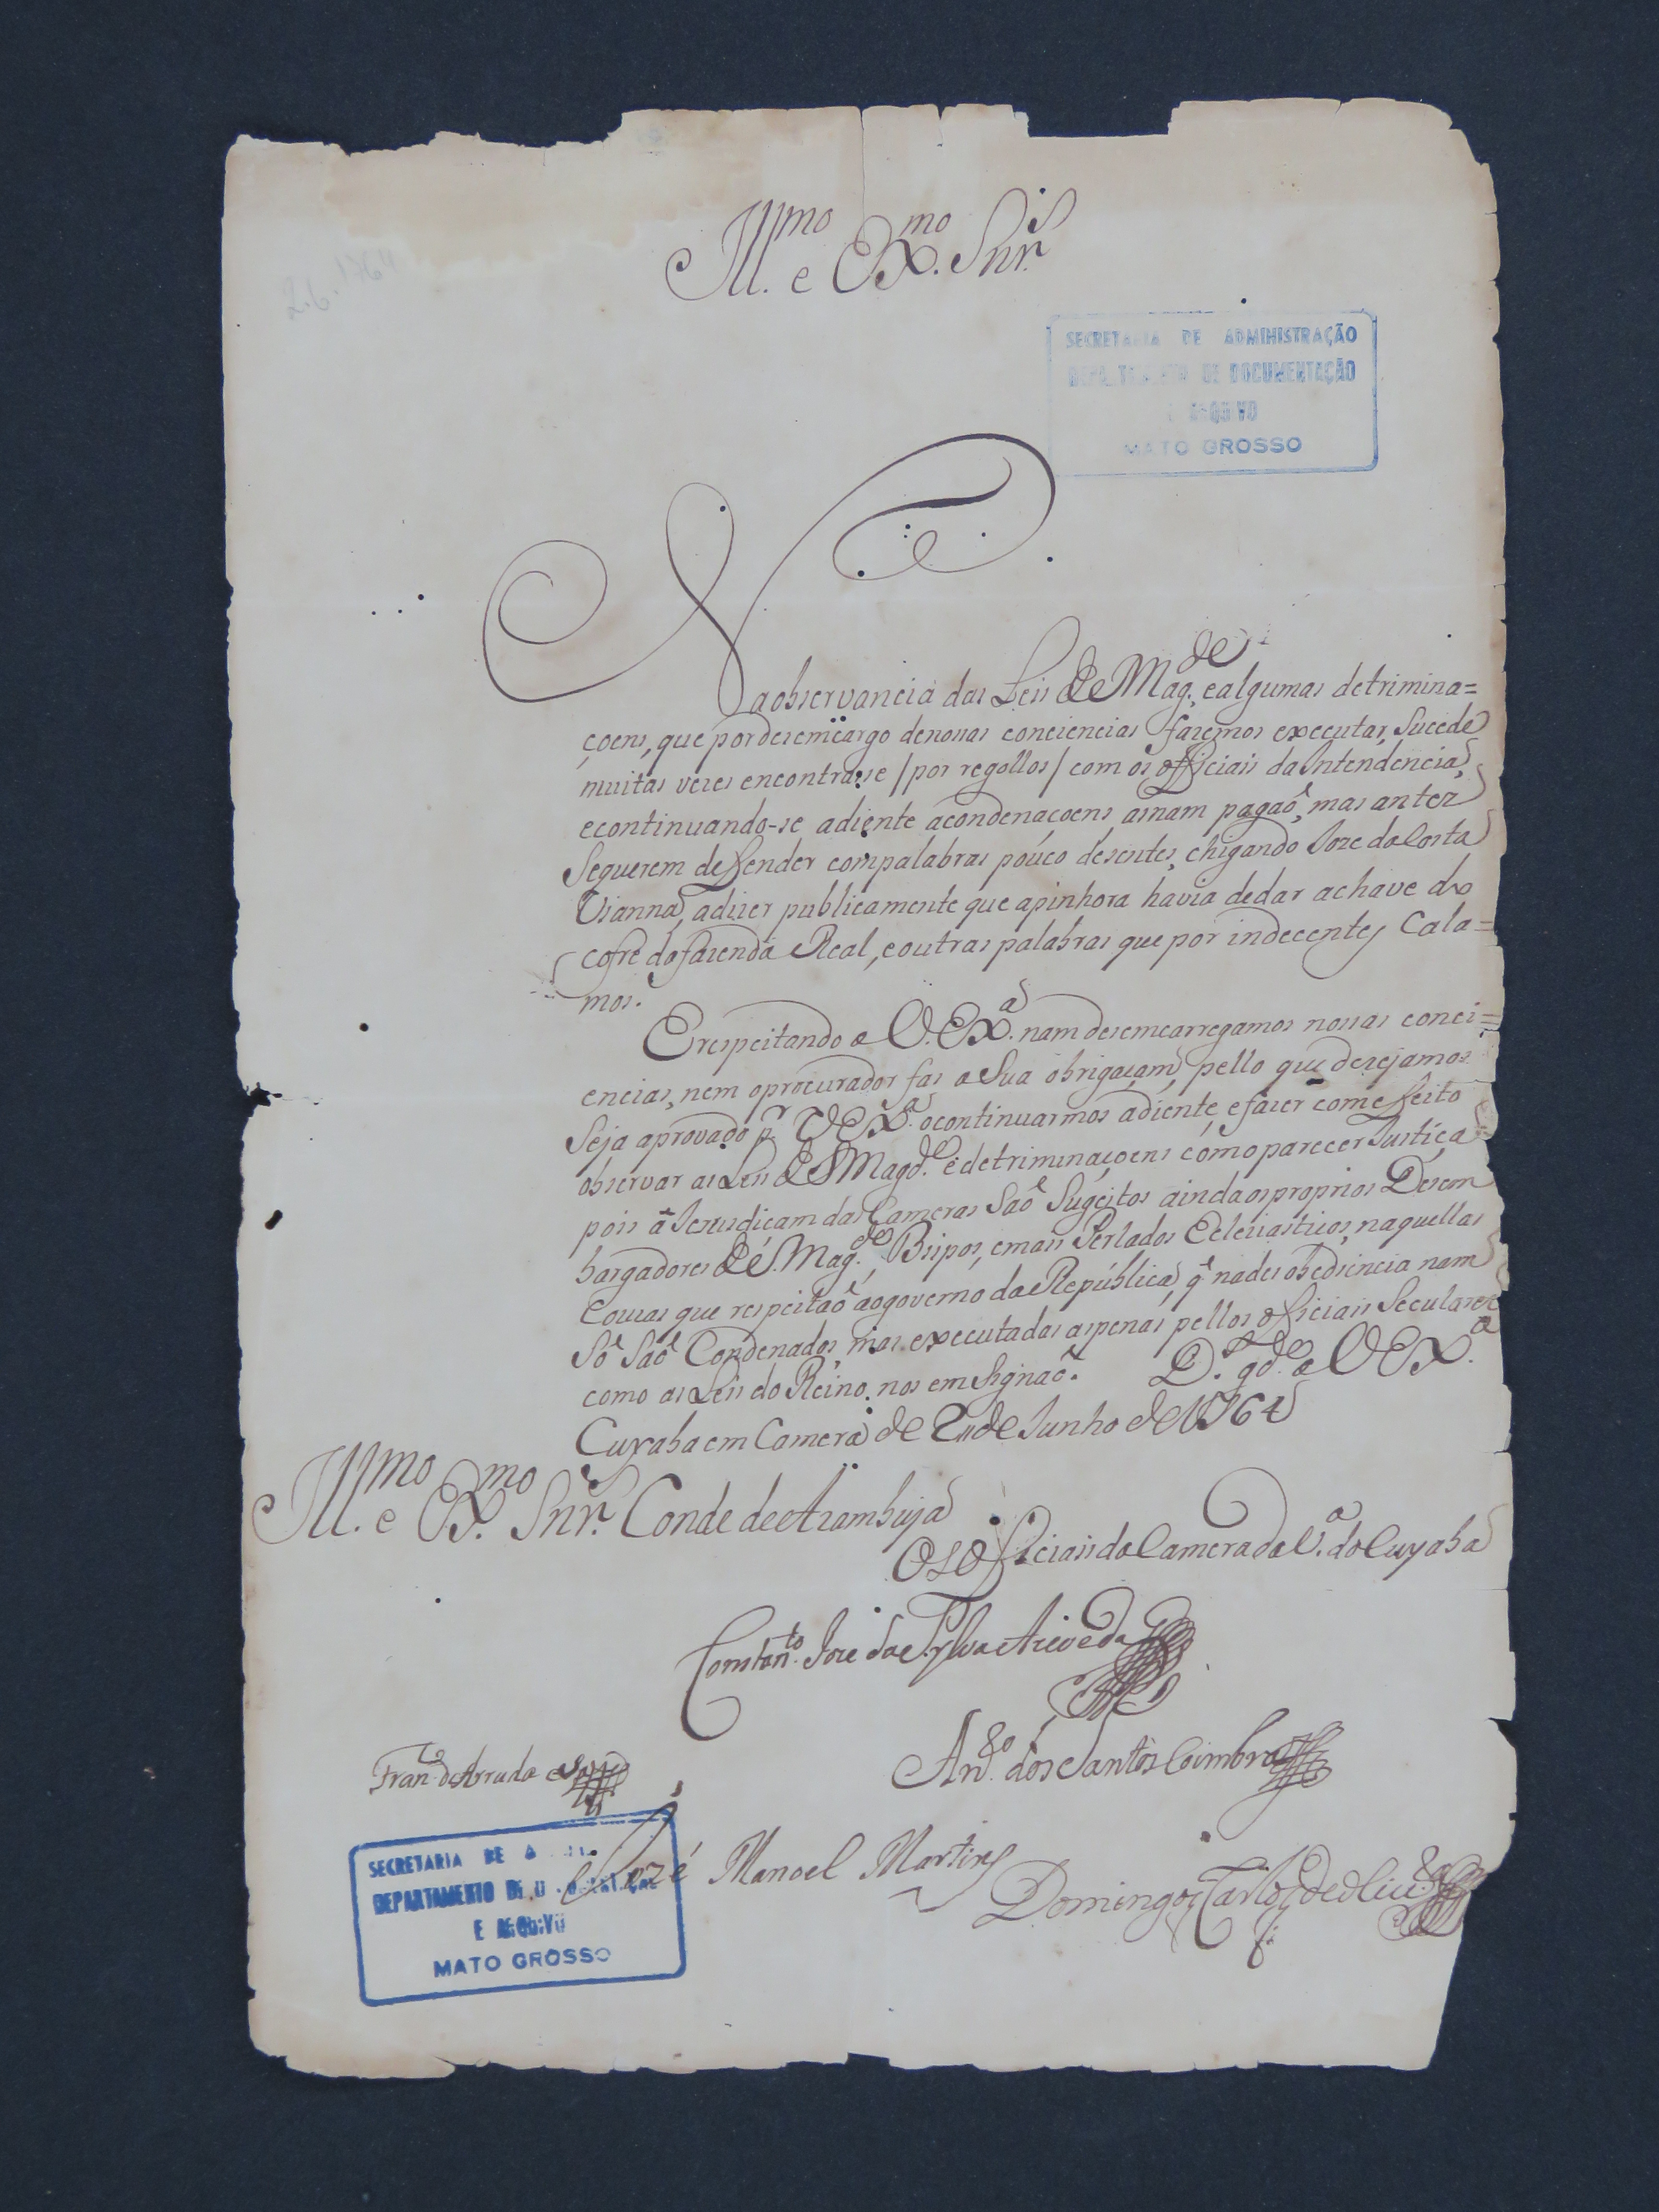 Ill.mo e Ex.mo Snr.
2.6.1764
SECRETARIA DE ADMINISTRAÇÃO
DEPARTAMENTO DE DOCUMENTAÇÃO
E ARQUIVO
MATO GROSSO
Na observancia das Leis de S Mag.de, e algumas detrimina=
çoens, que por desemcargo de nossas conciencias fazemos executar, sucede
muitas vezes encontrarse /por regollos/ com os officiais da Intendencia,
e continuando-se adiente acondenaçoens as nam pagaõ, mas antez
se querem deffender com palabras poúco desentes, chigando Joze da Costa
Vianna, a dizer publicamente que apinhora havia de dar a chave do
cofre da fazenda Real, e outras palabras que por indecentes Cala=
mos.
E respeitando a V. Ex.a nam desemcarregamos nossas conci=
encias, nem o procurador fas a Sua obrigaçam, pello que desejamos
Seja aprovado p.r V Ex.a o continuarmos adiente, e fazer com effeito
observar as Leis de S Magd.e e detriminaçoens como parecer Justiça
pois á Jerusdiçam das Cameras Saõ Sugeitos ainda os proprios Desem
bargadores de S. Mag.de, Bispos, e mais Perlados Eclesiasticos, naquellas
Couzas que respeitaõ ao governo da República, q̃ na desobediencia nam
Só Saõ Condenados, mas executadas as penas pellos officiais Seculares
como as Leis do Reino nos emsignaõ. D.s gd.e a V Ex.a
Cuyaba em Camera de 2 de Junho de 1764
Ill.mo e Ex.mo Snr. Conde de Azambuja
Os Officiais da Camera da V.a do Cuyaba
Constan.to Joze da Sylva Azevedo
An.to dos Santos Coimbra
Fran.co de Arruda e Sá
José Manoel Martins
Domingos Carlos de Oliv.ra
SECRETARIA DE
DEPARTAMENTO DE DOCUMENTAÇÃO
E ARQUIVO
MATO GROSSO